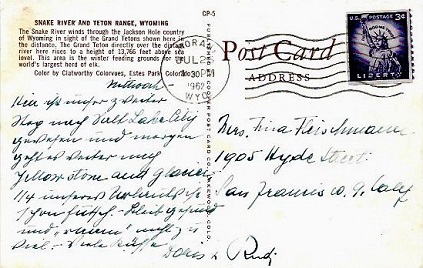 SNAKE RIVER AND TETON RANGE, WYOMING
The Snake River winds through the Jackson Hole country
of Wyoming in sight of the Grand Tetons shown here in
the distance. The Grand Teton directly over the distant
river here rises to a height of 13,766 feet above sea
level. This area is the winter feeding grounds for the
world's largest herd of elk.
Color by Clatworthy Colorvues, Estes Park, Colorado
CP-5
MORAN
JUL 2
PM
WYO.
Post Card
ADDRESS
U.S. POSTAGE 3¢
LIBERTY
Mittwoch
Hier ist unser zweiter
Stop nach Salt Lake City
gewesen und morgen
geht es weiter nach
Yellowstone and Glacier
1/4 unseres Urlaubs ist
schon futsch - Bleibt gesund
und
viel - Viele Küsse
Doris & Rudi
Mrs. Tina Fleischmann
1905 Hyde Street
San Francisco 9, Calif